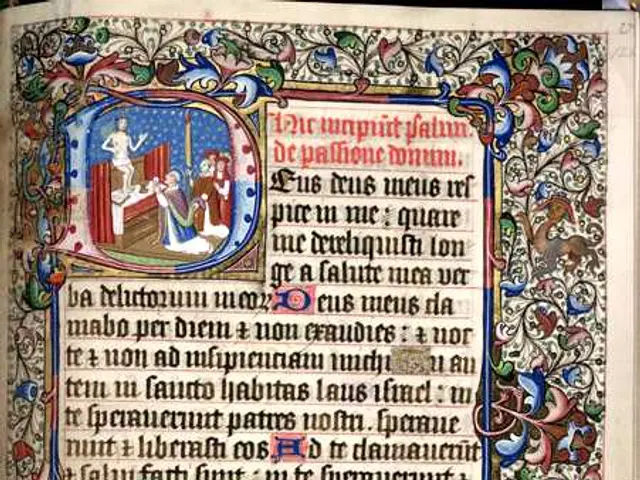 Hic incipiūt psalmi.
de passione domini.
Deus deus meus res
pice in me : quare
me dereliquisti lon
ge a salute mea ver
ba delictorum meorꝝ Deus meus cla
mabo per diem ⁊ non exaudies : ⁊ noc
te ⁊ non ad insipienciam michi Tu au
tem in sancto habitas laus israel : in
te speraverunt patres nostri . sperave
runt ⁊ liberasti eos Ad te clamaverūt
⁊ salvi facti sunt : in te speraverunt ⁊